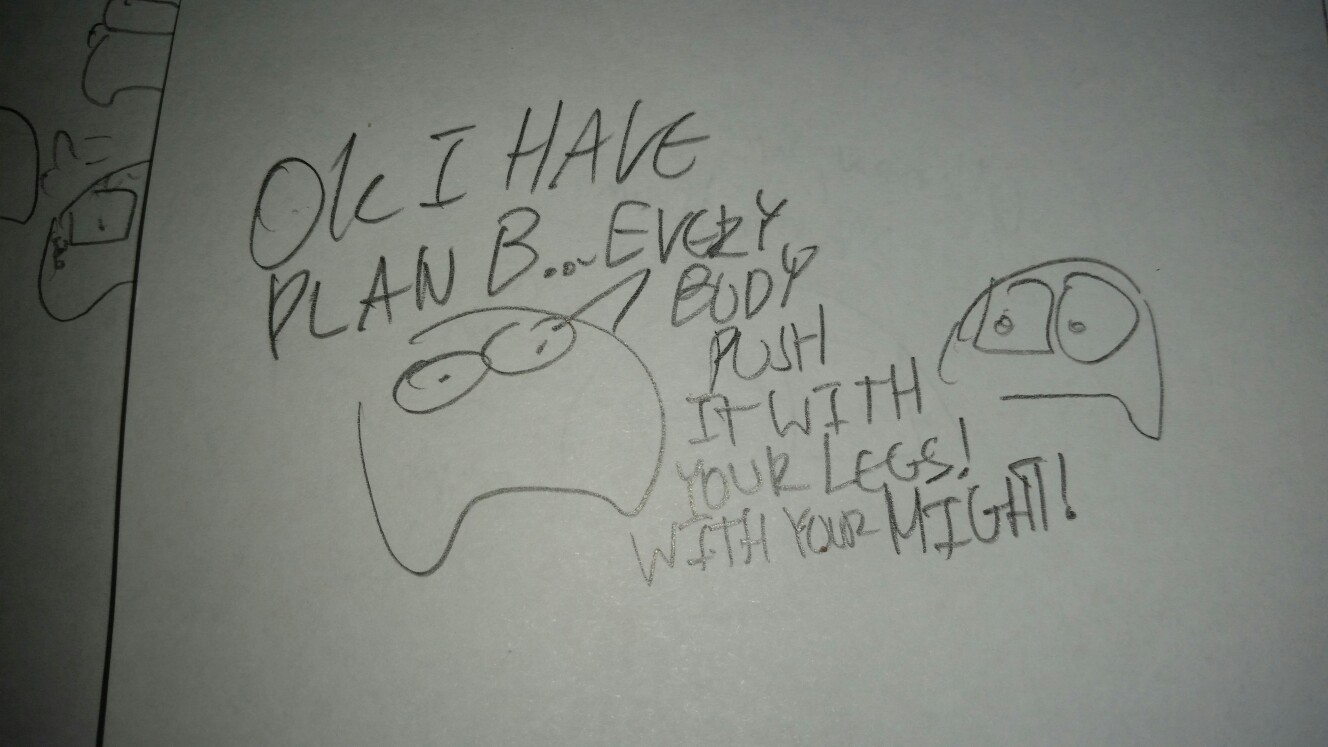 OK I HAVE
PLAN B...EVERY
BODY
PUSH
IT WITH
YOUR LEGS!
WITH YOUR MIGHT!